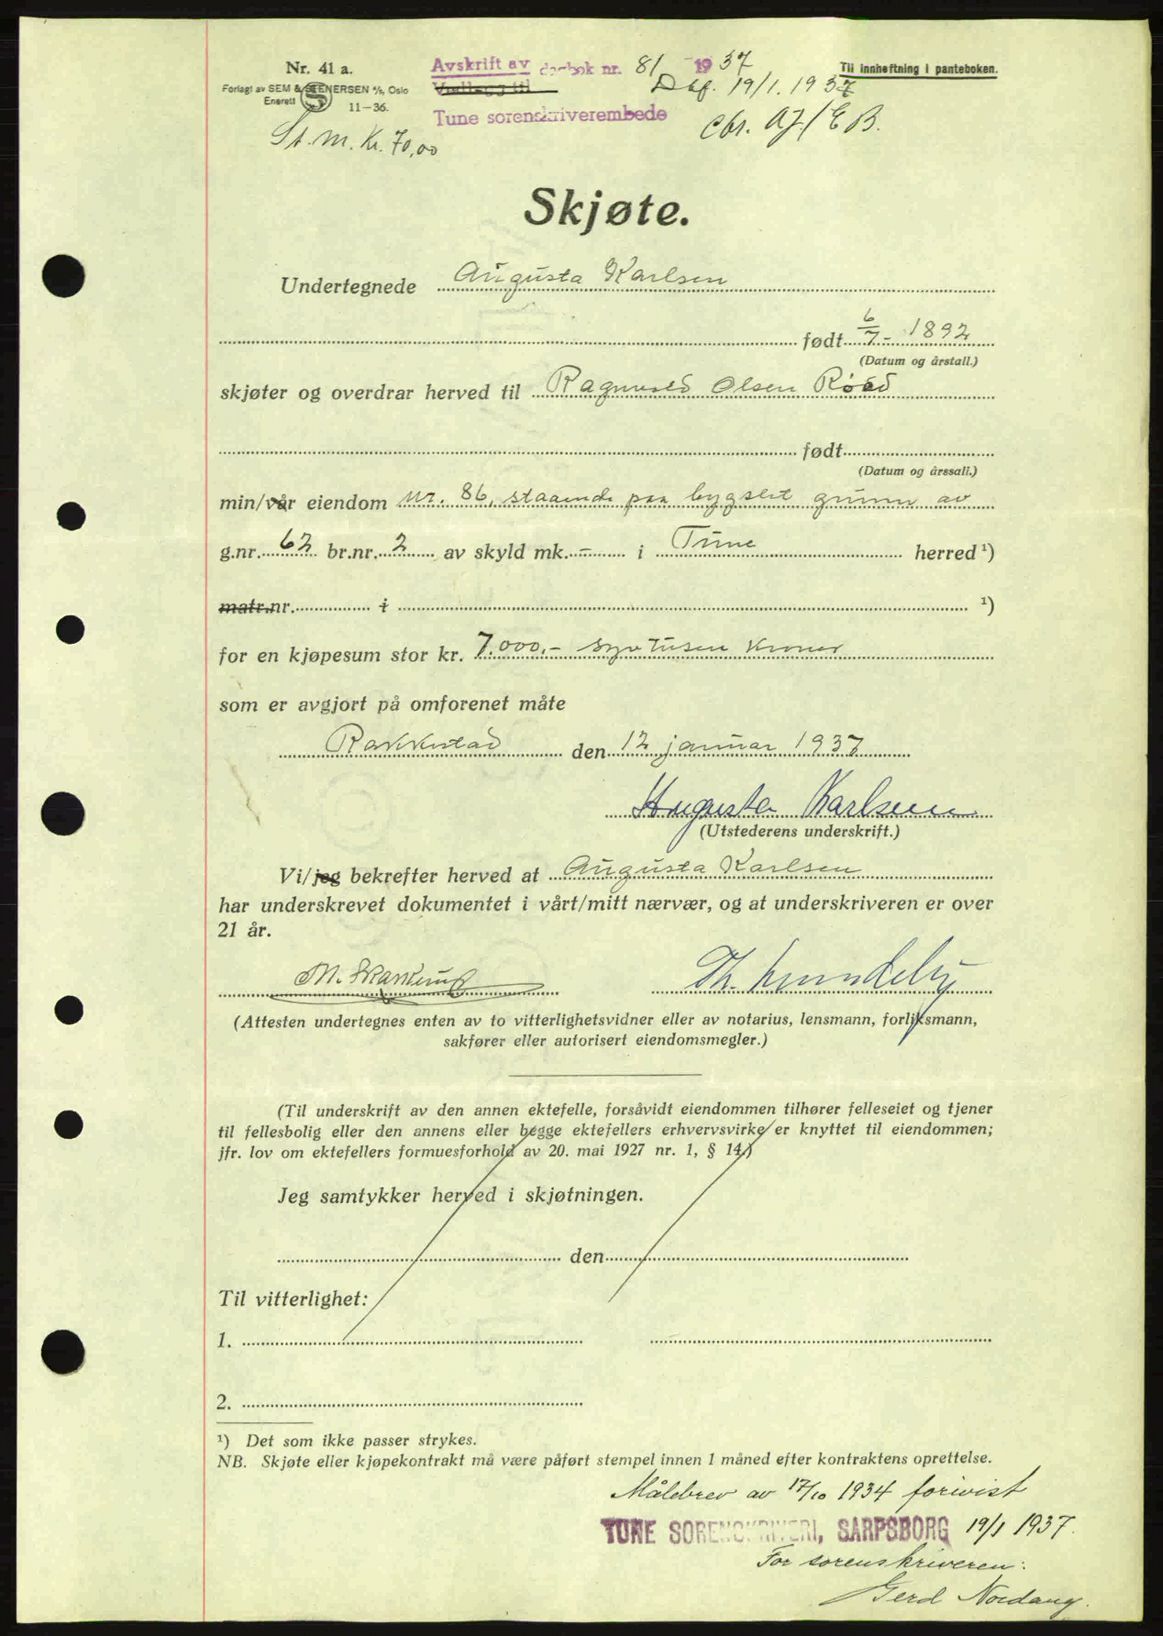 Nr. 41 a.
Forlagt av SEM & STENERSEN A/S, Oslo
Enerett 11-36.
St.m. Kr. 70,00
Avskrift av dagbok nr. 81 1937
Vedlegg til
Tune sorenskriverembede
Dbf. 19/1. 1937
Til innheftning i panteboken.
cbr. AJ/EB.
Skjøte.
Undertegnede Augusta Karlsen
født 6/7 - 1892
(Datum og årstall.)
skjøter og overdrar herved til Ragnvald Olsen Röed
født
(Datum og årssall.)
min/vår eiendom nr. 86, staaende paa bygslet grunn av
g.nr. 62 br.nr. 2 av skyld mk. - i Tune herred ¹)
matr.nr. i ¹)
for en kjøpesum stor kr. 7.000.- syv tusen kroner
som er avgjort på omforenet måte
Rakkestad den 12 januar 1937
Augusta Karlsen
(Utstederens underskrift.)
Vi/jeg bekrefter herved at Augusta Karlsen
har underskrevet dokumentet i vårt/mitt nærvær, og at underskriveren er over
21 år.
M. Th.
(Attesten undertegnes enten av to vitterlighetsvidner eller av notarius, lensmann, forliksmann,
sakfører eller autorisert eiendomsmegler.)
(Til underskrift av den annen ektefelle, forsåvidt eiendommen tilhører felleseiet og tjener
til fellesbolig eller den annens eller begge ektefellers erhvervsvirke er knyttet til eiendommen;
jfr. lov om ektefellers formuesforhold av 20. mai 1927 nr. 1, § 14.)
Jeg samtykker herved i skjøtningen.
den
Til vitterlighet:
1.
2.
¹) Det som ikke passer strykes.
NB. Skjøte eller kjøpekontrakt må være påført stempel innen 1 måned efter kontraktens oprettelse.
Målebrev av 17/10 1934 forevist
TUNE SORENSKRIVERI, SARPSBORG 19/1 1937.
For sorenskriveren:
Gerd Nordang.